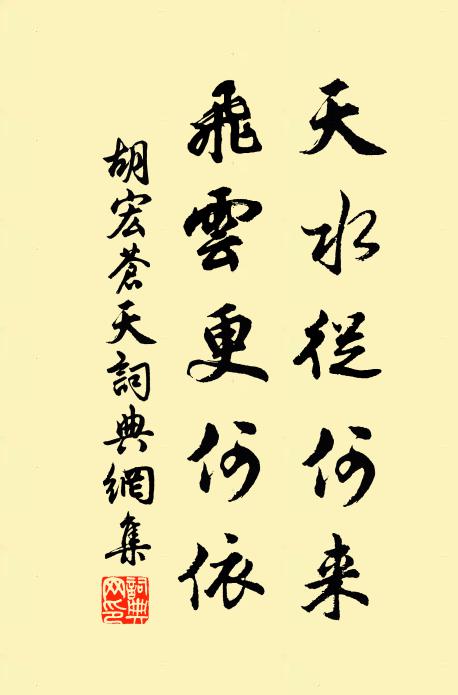 天水從何来
飛雲更何依
胡宏蒼天詞典網集
詞典网印